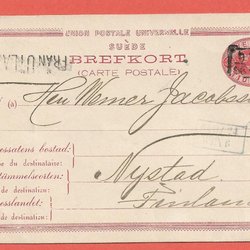 UNION POSTALE UNIVERSELLE
SUÈDE
BREFKORT
(CARTE POSTALE)
FRÅN UTLA
(à) Herr Werner Jacobss
ressatens bostad:
du destinataire:
stämmelseorten:
de destination:
esslandet:
de destination:
Nystad
Finlan